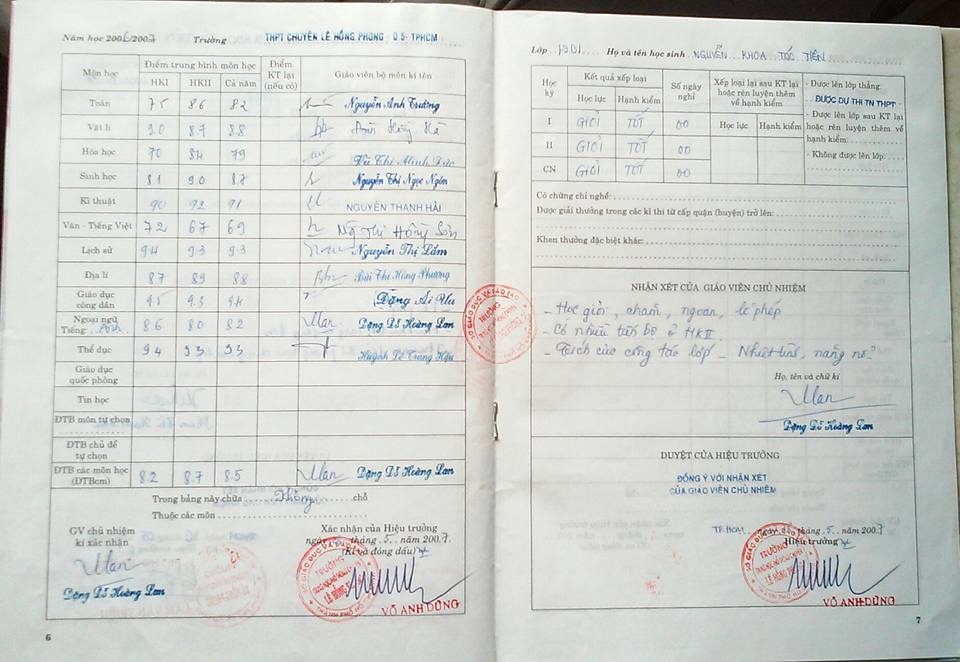 Năm học 2006/2007 Trường THPT CHUYÊN LÊ HỒNG PHONG Q 5- TPHCM
Môn học Điểm trung bình môn học Điểm KT lại (nếu có) Giáo viên bộ môn kí tên
HKI HKII Cả năm
Toán 75 86 82 Nguyễn Anh Trường
Vật lí 9.0 87 88
Hóa học 70 84 79 Vũ Thị Minh Đức
Sinh học 81 9.0 87 Nguyễn Thị Ngọc Ngôn
Kĩ thuật 90 92 91 NGUYỄN THANH HẢI
Văn - Tiếng Việt 72 67 69 Ngô Thị Hồng Sơn
Lịch sử 94 93 93 Nguyễn Thị Lắm
Địa lí 87 89 88 Bùi Thị Hồng Phương
Giáo dục công dân 9.5 9.3 9.4 Đặng Ái
Ngoại ngữ
Tiếng: Anh 86 80 82 Đặng Đỗ Hoàng Lan
Thể dục 94 93 93 Huỳnh Lê Trung Hậu
Giáo dục
quốc phòng
Tin học
ĐTB môn tự chọn
ĐTB chủ đề
tự chọn
ĐTB các môn học
(ĐTBcm) 8.2 8.7 8.5 Đặng Đỗ Hoàng Lan
Trong bảng này chữa Không chỗ
Thuộc các môn
GV chủ nhiệm
kí xác nhận
Đặng Đỗ Hoàng Lan
Xác nhận của Hiệu trưởng
tháng 5 năm 2007
(Kí và đóng dấu)
VÕ ANH DŨNG
6
Lớp Họ và tên học sinh NGUYỄN KHOA TÓC TIÊN
Học kỳ Kết quả xếp loại Số ngày nghỉ Xếp loại lại sau KT lại hoặc rèn luyện thêm về hạnh kiểm
Học lực Hạnh kiểm Học lực Hạnh kiểm
I GIỎI TỐT 00
II GIỎI TỐT 00
CN GIỎI TỐT 00
- Được lên lớp thẳng
ĐƯỢC DỰ THI TN THPT
- Được lên lớp sau KT lại
hoặc rèn luyện thêm về
hạnh kiểm:
- Không được lên lớp:
Có chứng chỉ nghề:
Được giải thưởng trong các kì thi từ cấp quận (huyện) trở lên:
Khen thưởng đặc biệt khác:
NHẬN XÉT CỦA GIÁO VIÊN CHỦ NHIỆM
- Học giỏi, chăm, ngoan, lễ phép
- Có nhiều tiến bộ ở HKII
- Tích cực công tác lớp - Nhiệt tình, năng nổ
Họ, tên và chữ kí
Đặng Đỗ Hoàng Lan
DUYỆT CỦA HIỆU TRƯỞNG
ĐỒNG Ý VỚI NHẬN XÉT
CỦA GIÁO VIÊN CHỦ NHIỆM
TP.HCM tháng 5 năm 2007
Hiệu trưởng
VÕ ANH DŨNG
7
SỞ GIÁO DỤC VÀ ĐÀO TẠO
TRƯỜNG
LÊ HỒNG PHONG